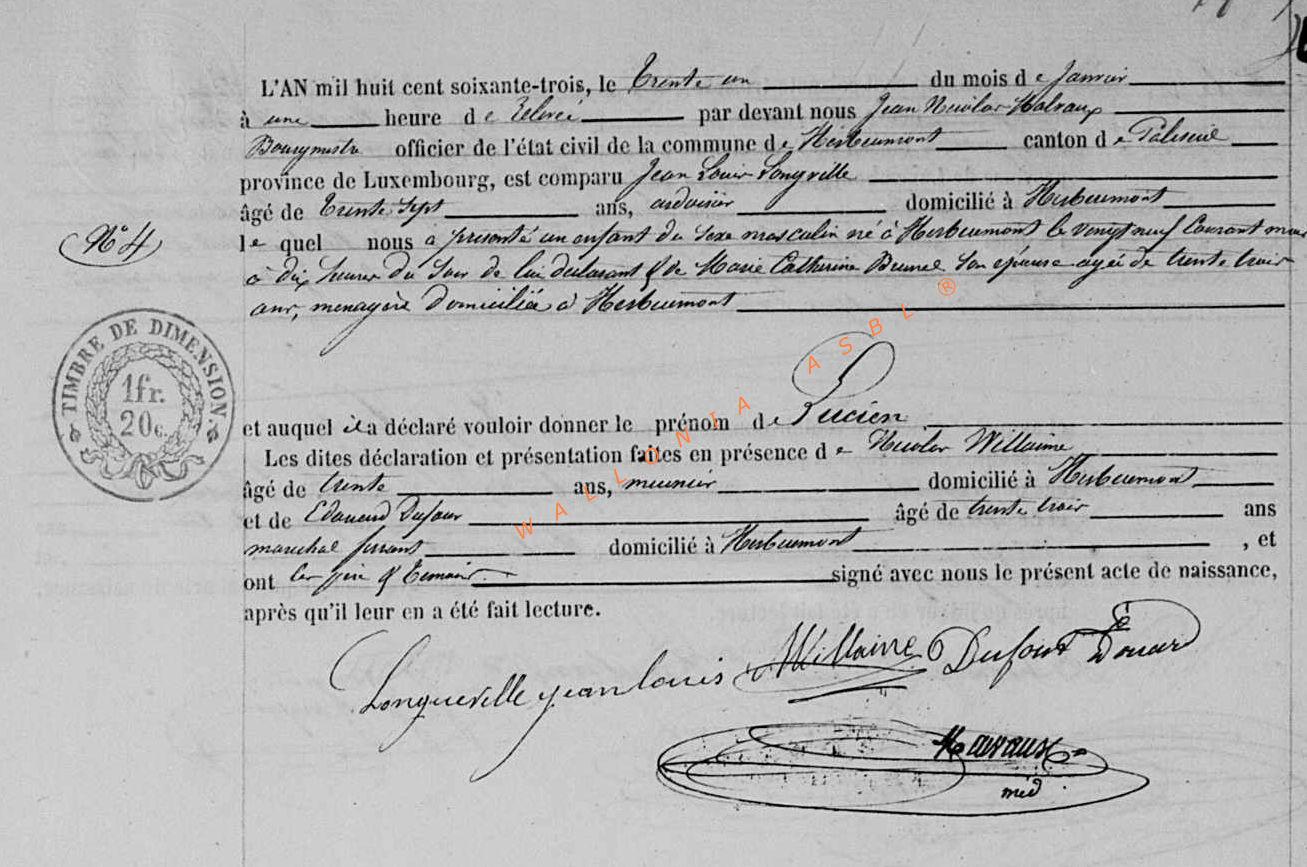 L'AN mil huit cent soixante-trois, le Trente un du mois de Janvier
à une heure de relevée par devant nous Jean Nicolas
Bourgmestre officier de l'état civil de la commune de Herbeumont canton de Paliseul
province de Luxembourg, est comparu Jean Louis Longville
âgé de trente sept ans, ardoisier domicilié à Herbeumont
N° 4
le quel nous a présenté un enfant du sexe masculin né à Herbeumont le vingt neuf Courant mois
à dix heures du soir de lui déclarant & de Marie Catherine son épouse agée de trente trois
ans, menagère domiciliée à Herbeumont
TIMBRE DE DIMENSION
1fr.
20c.
et auquel il a déclaré vouloir donner le prénom de Lucien
Les dites déclaration et présentation faites en présence de Nicolas Willaime
âgé de trente ans, meunier domicilié à Herbeumont
et de Edouard Dufour âgé de trente trois ans
marechal ferrant domicilié à Herbeumont , et
ont les père & temoins signé avec nous le présent acte de naissance,
après qu'il leur en a été fait lecture.
Longueville jean louis Willaime Dufour Edouard
méd
WALLONIA ASBL ®